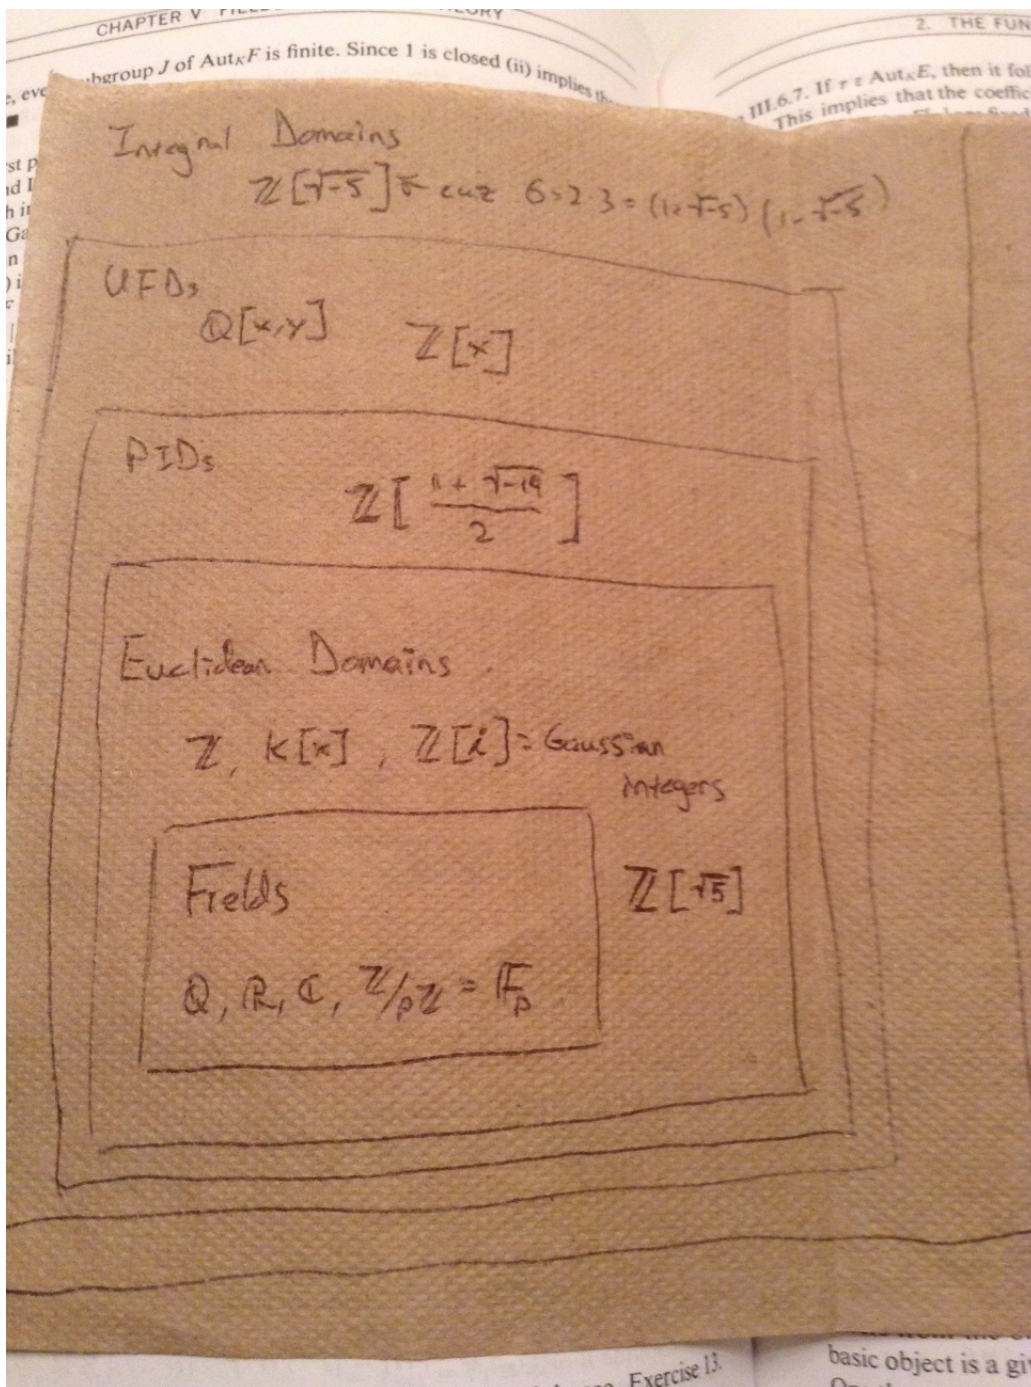 CHAPTER V
2. THE FUN
subgroup J of Aut_K F is finite. Since 1 is closed (ii) implies
III.6.7. If τ ε Aut_K E, then it fol
This implies that the coeffic
Integral Domains
ℤ[√-5] ← cuz 6=2·3=(1+√-5)(1-√-5)
UFDs
ℚ[x,y] ℤ[x]
PIDs
ℤ[(1+√-19)/2]
Euclidean Domains
ℤ, K[x], ℤ[i] = Gaussian
integers
Fields
ℤ[√5]
ℚ, ℝ, ℂ, ℤ/pℤ = 𝔽p
basic object is a gi
Exercise 13.